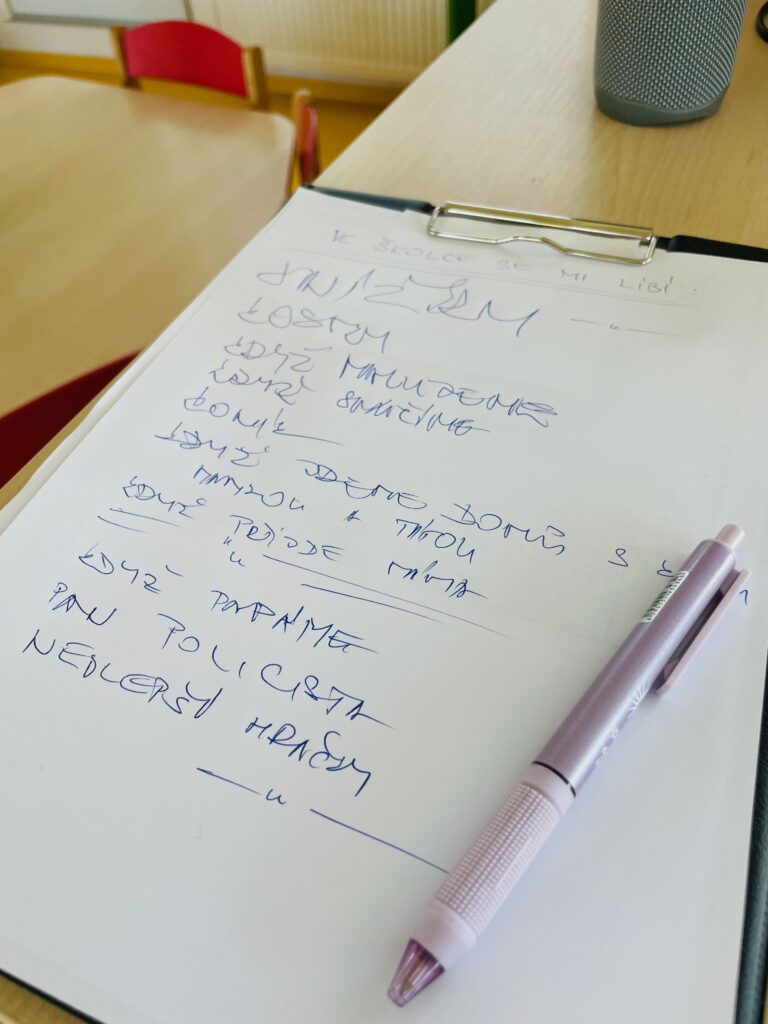 VE ŠKOLCE SE MI LÍBÍ:
KOSTKY
KDYŽ MALUJEME
KDYŽ SVAČÍME
KONÍK
KDYŽ JDEME DOMŮ S
MAMKOU A TÁTOU
KDYŽ PŘIJDE MÁMA
KDYŽ PAPÁME
PAN POLICISTA
NEJLEPŠÍ HRAČKY